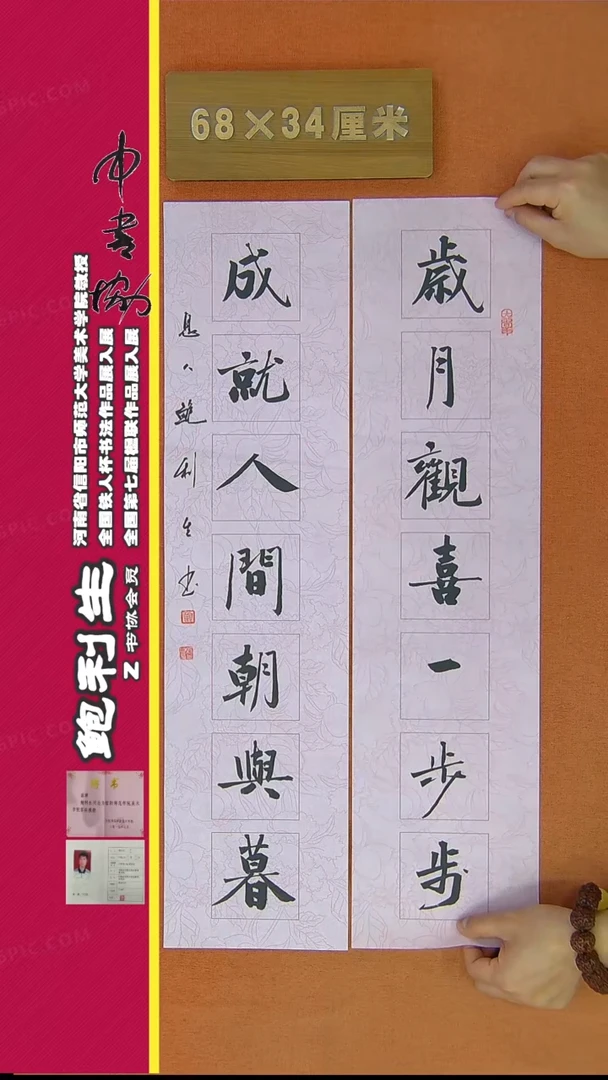 68×34厘米
歲月觀喜一步步
成就人間朝與暮
鮑利生书
中书协
河南省信阳市师范大学美术学院教授
全国铁人杯书法作品展入展
全国第七届楹联作品展入展
鲍利生
Z 书协会员